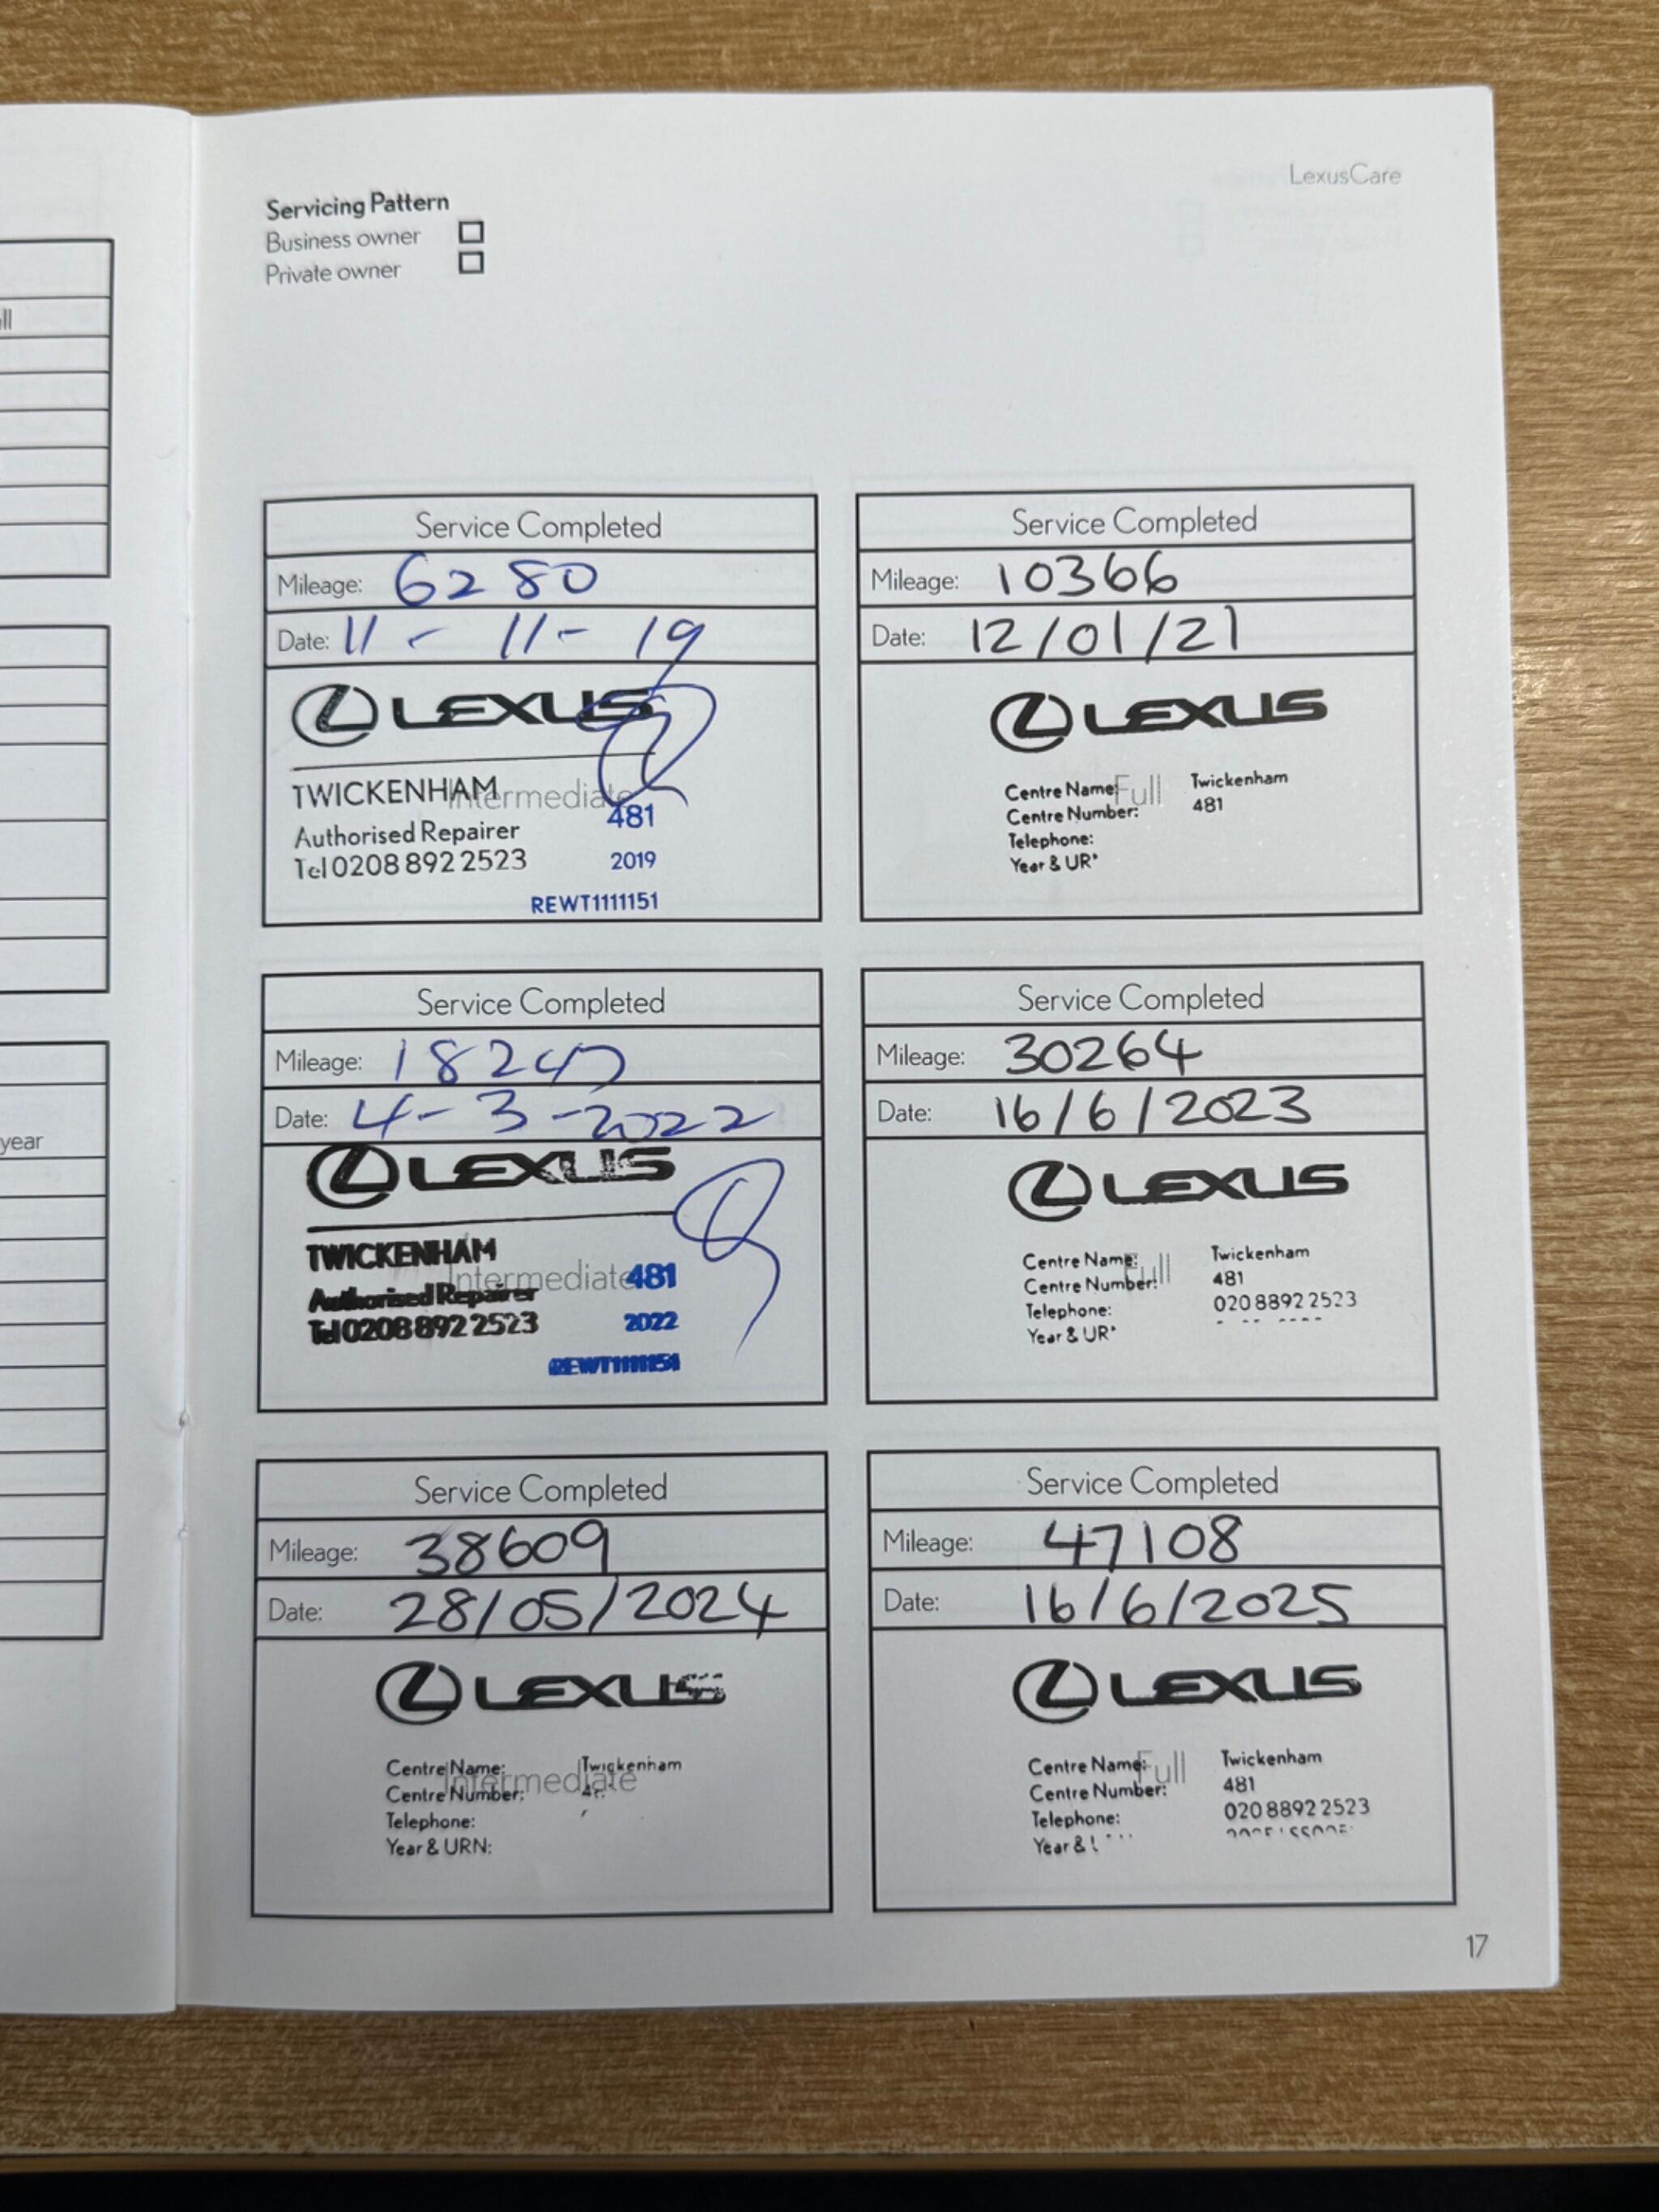 LexusCare
Servicing Pattern
Business owner
Private owner
ll
year
Service Completed
Mileage: 6280
Date: 11 - 11 - 19
LEXUS
TWICKENHAM
Intermediate
481
Authorised Repairer
Tel 0208 892 2523
2019
REWT1111151
Service Completed
Mileage: 10366
Date: 12/01/21
LEXUS
Full
Centre Name: Twickenham
Centre Number: 481
Telephone:
Year & UR
Service Completed
Mileage:
Date: 4 - 3 - 2022
LEXUS
TWICKENHAM
Intermediate
481
Authorised Repairer
Tel 0208 892 2523
2022
REWT1111151
Service Completed
Mileage: 30264
Date: 16/6/2023
LEXUS
Full
Centre Name: Twickenham
Centre Number: 481
Telephone: 020 8892 2523
Year & UR
Service Completed
Mileage: 38609
Date: 28/05/2024
LEXUS
Intermediate
Centre Name: Twickenham
Centre Number:
Telephone:
Year & URN:
Service Completed
Mileage: 47108
Date: 16/6/2025
LEXUS
Full
Centre Name: Twickenham
Centre Number: 481
Telephone: 020 8892 2523
Year &
17